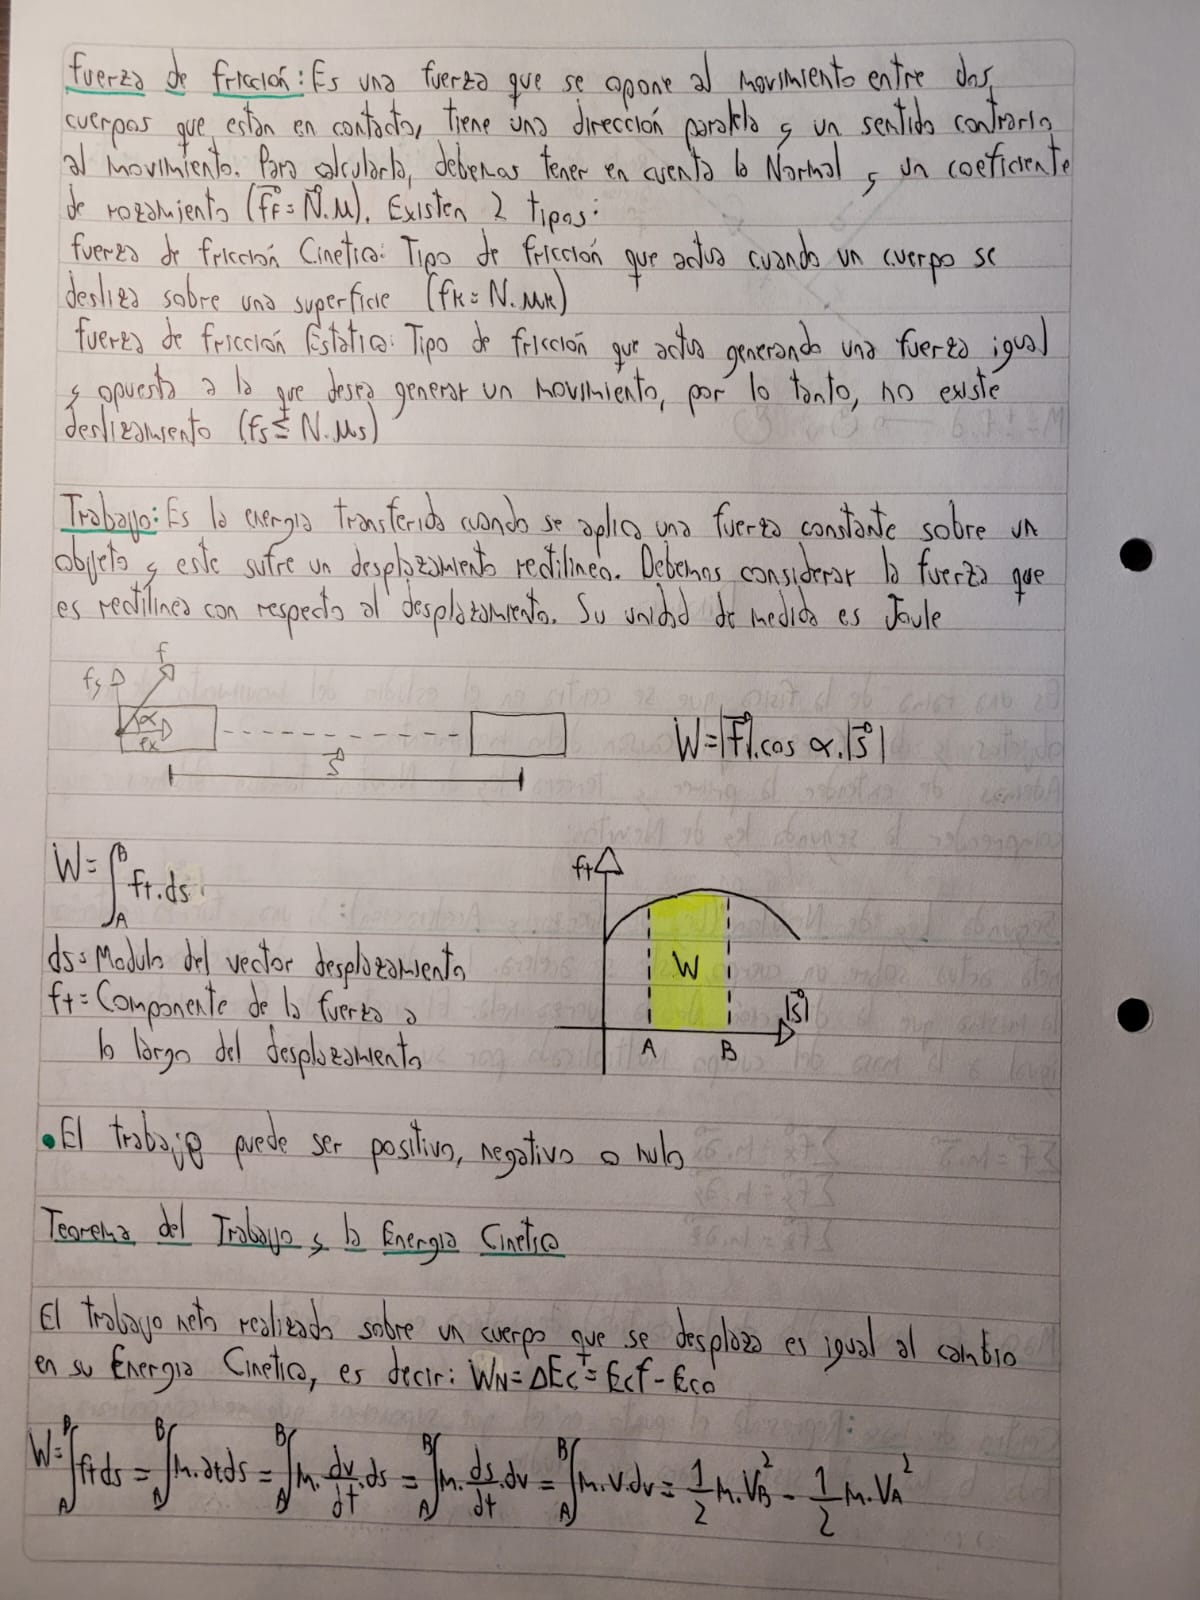 Fuerza de fricción: Es una fuerza que se opone al movimiento entre dos
cuerpos que estan en contacto, tiene una dirección paralela y un sentido contrario
al movimiento. Para calcularla, debemos tener en cuenta la Normal y un coeficiente
de rozamiento (F⃗f = N⃗.μ). Existen 2 tipos:
fuerza de fricción Cinetica: Tipo de fricción que actua cuando un cuerpo se
desliza sobre una superficie (fk = N.μk)
fuerza de fricción Estatica: Tipo de fricción que actua generando una fuerza igual
y opuesta a la que desea generar un movimiento, por lo tanto, no existe
deslizamiento (fs ≤ N.μs)
Trabajo: Es la energia transferida cuando se aplica una fuerza constante sobre un
objeto y este sufre un desplazamiento rectilineo. Debemos considerar la fuerza que
es rectilinea con respecto al desplazamiento. Su unidad de medida es Joule
f
fy
α
fx
s⃗
W = |F⃗|.cos α.|s⃗|
W = ∫_A^B ft.ds
ft
W
|s⃗|
A B
ds = Modulo del vector desplazamiento
ft = Componente de la fuerza a
lo largo del desplazamiento
• El trabajo puede ser positivo, negativo o nulo
Teorema del Trabajo y la Energia Cinetica
El trabajo neto realizado sobre un cuerpo que se desplaza es igual al cambio
en su Energia Cinetica, es decir: WN = ΔEc = Ecf - Eco
W = ∫_A^B ft ds = ∫_A^B m.at ds = ∫_A^B m. dv/dt .ds = ∫_A^B m. ds/dt .dv = ∫_A^B m.v.dv = 1/2 m.VB² - 1/2 m.VA²